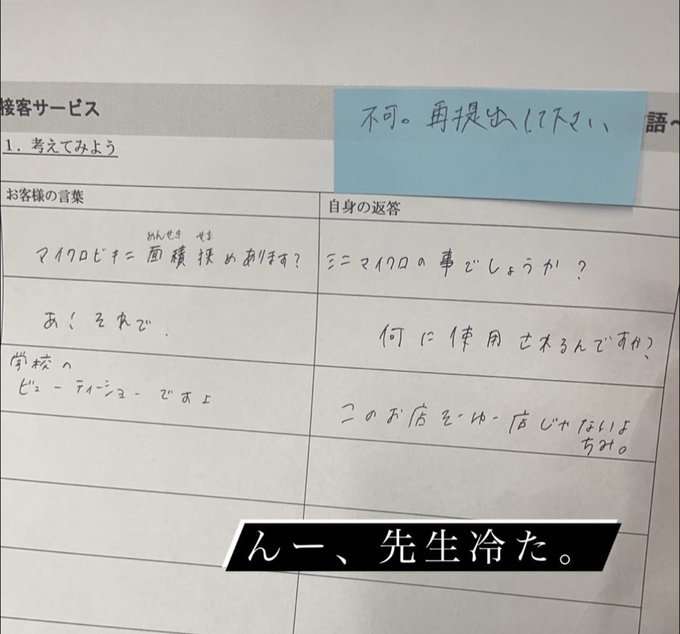 接客サービス
不可。再提出して下さい、
語~
1. 考えてみよう
お客様の言葉
自身の返答
マイクロビキニ面積狭めあります?
めんせき せま
ミニマイクロの事でしょうか?
あ!それで、
何に使用されるんですか?
学校の
ビューティーショーですよ
このお店そーゆー店じゃないよ
ちみ。
んー、先生冷た。